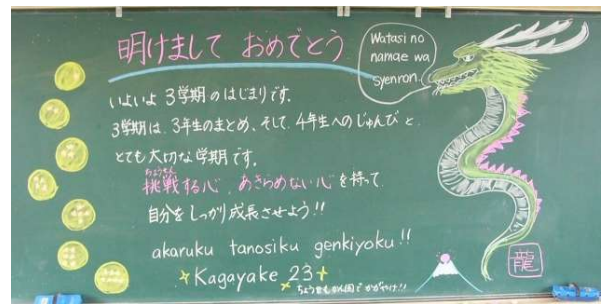 明けまして おめでとう
Watasi no
namae wa
syenron.
いよいよ 3学期のはじまりです。
3学期は、3年生のまとめ、そして、4年生へのじゅんびと、
とても大切な学期です。
ちょうせん
挑戦する心、あきらめない心を持って
自分をしっかり成長させよう!!
akaruku tanosiku genkiyoku!!
Kagayake 23
かがやけ!!
龍